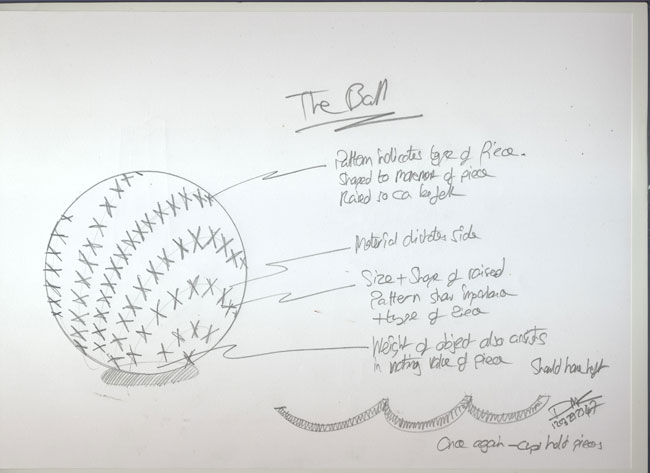 The Ball
Pattern indicates type of Piece.
Shaped to movement of piece
Raised so can be felt
Material dictates side
Size + Shape of raised
Pattern show importance
+ type of Piece
Weight of object also assists
in noting value of piece
Should have
Once again - cups hold pieces